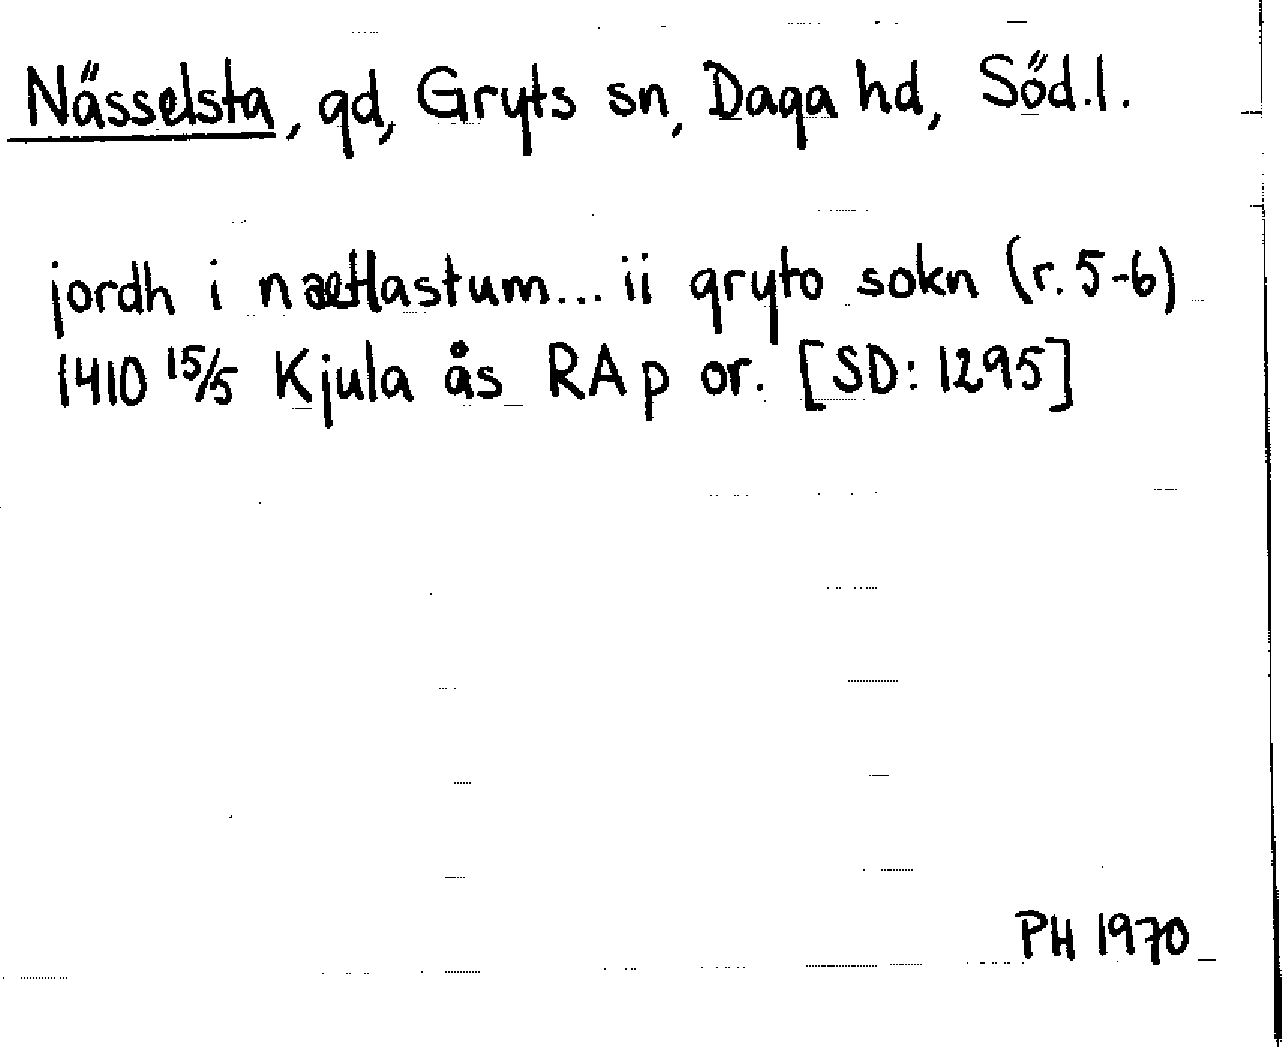 Nässelsta, gd, Gryts sn, Daga hd, Söd.l.
jordh i naetlastum... ii gryto sokn (r. 5-6)
1410 15/5 Kjula ås RAp or. [SD: 1295]
PH 1970